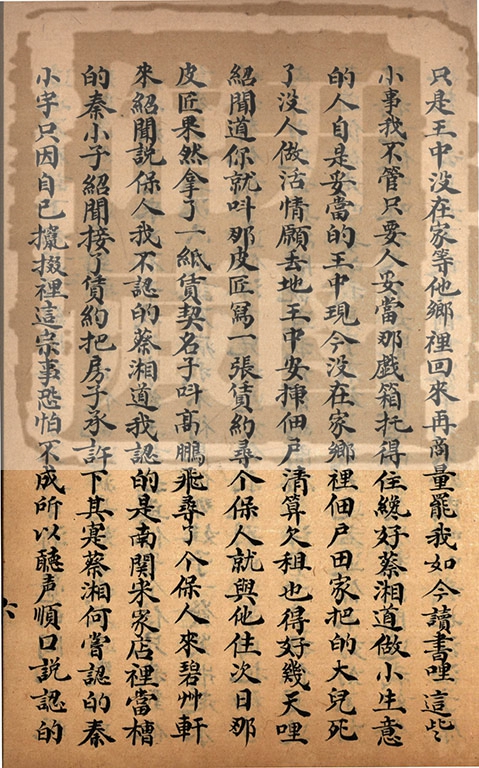 只是王中没在家等他鄉裡回來再商量罷我如今讀書哩這些
小事我不管只要人妥當那戲箱托得住纔好蔡湘道做小生意
的人自是妥當的王中現今没在家鄉裡佃戶田家把的大兒死
了没人做活情願去地王中安揷佃戶清算欠租也得好幾天哩
紹聞道你就呌那皮匠寫一張賃約尋个保人就與他住次日那
皮匠果然拿了一紙賃契名子呌高鵬飛尋了个保人來碧艸軒
來紹聞説保人我不認的蔡湘道我認的是南関朱家店裡當槽
的秦小子紹聞接了賃約把房子承許下其寔蔡湘何嘗認的秦
小宇只因自已攛掇裡這宗事恐怕不成所以聽声順口説認的
六